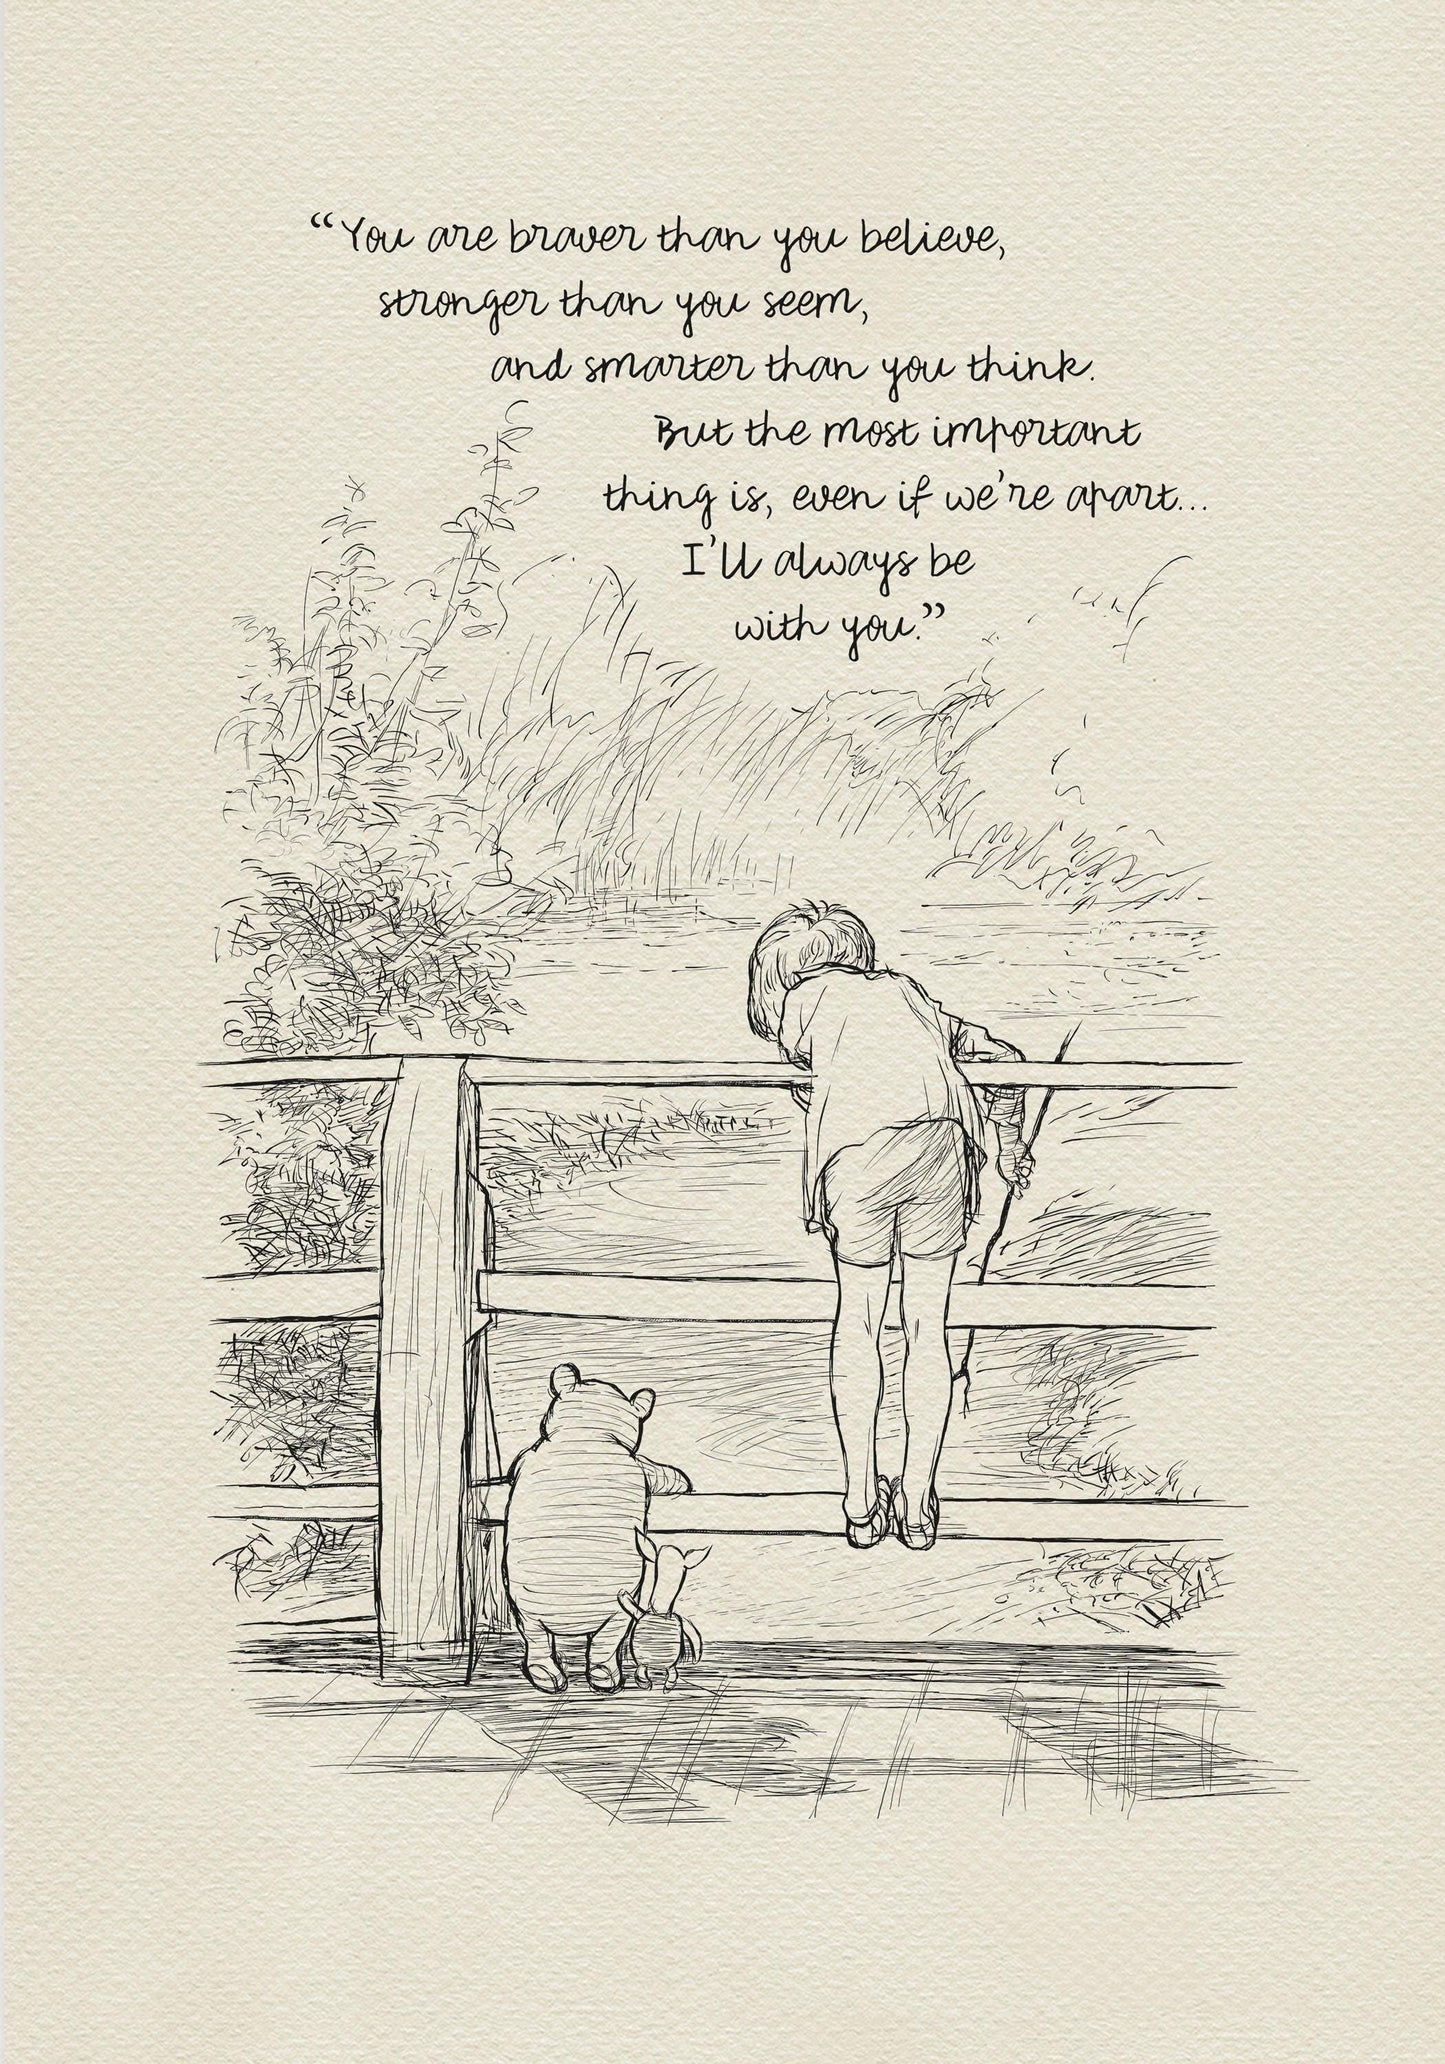 “You are braver than you believe,
stronger than you seem,
and smarter than you think.
But the most important
thing is, even if we’re apart...
I’ll always be
with you.”